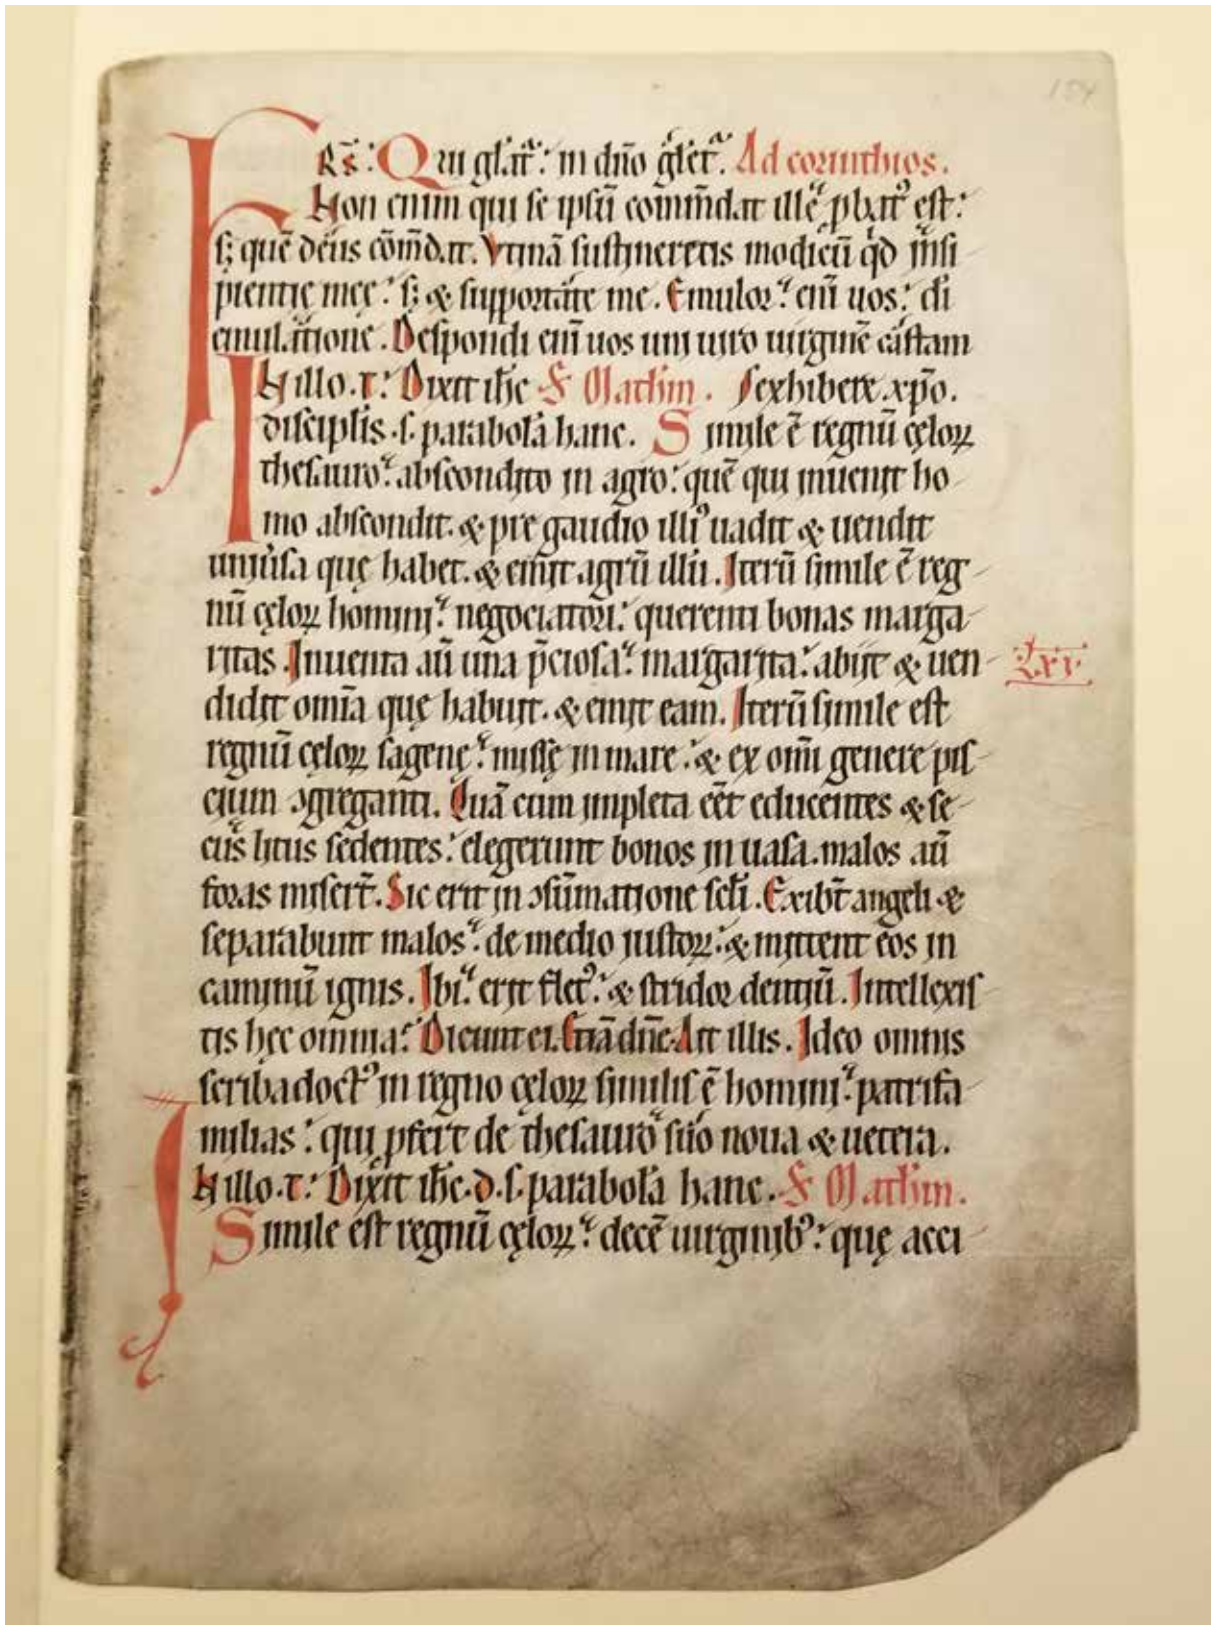 154
FRS: Qui gl̄at̄: in dn̄o gl̄et̄. Ad corinthios.
Non enim qui se ipsū com̄ndat ille p̱bat⁹ est:
sꝫ quē deus cōmdat. Vtinā sustineretis modicū qd̄ insi-
pientię meę: sꝫ & supportate me. Emulor eni̅ uos: di̅
emulatione. Despondi eni̅ uos uni uiro uirginē castam
In illo .t: Dixit ih̄c S Mathm̄. exhibere xp̄o.
discipłis .s. parabolā hanc. Simile ē regnū cęloꝝ
thesauro abscondito in agro: quē qui inuenit ho-
mo abscondit. & pre gaudio illi⁹ uadit & uendit
uniu̅sa quę habet. & emit agrū illū. Iterū simile ē reg-
nū cęloꝝ homini negociatori: querenti bonas marga-
ritas. Inuenta aū una p̄ciosa margarita: abiit & uen-
didit om̄ia quę habuit. & emit eam. Iterū simile est
regnū cęloꝝ sagenę missę in mare: & ex om̄i genere pis-
cium ɔgreganti. Quā cum impleta eēt educentes & se-
cus litus sedentes: elegerunt bonos in uasa. malos aū
foras misert̄. Sic erit in ɔsūmatione scl̄i. Exibt̄ angeli &
separabunt malos de medio iustoꝝ: & mittent eos in
caminū ignis. Ibi erit flet⁹: & stridor dentiū. Intellexis-
tis hęc omnia: Dicunt ei. Etiā dn̄e. Ait illis. Ideo omnis
scriba doct⁹ in regno cęloꝝ similis ē homini patrifa-
milias: qui ꝓfert de thesauro suo noua & uetera.
In illo .t: Dixit ih̄c .d. s. parabolā hanc. S Mathm̄.
Simile est regnū cęloꝝ decē uirginib⁹: quę acci-